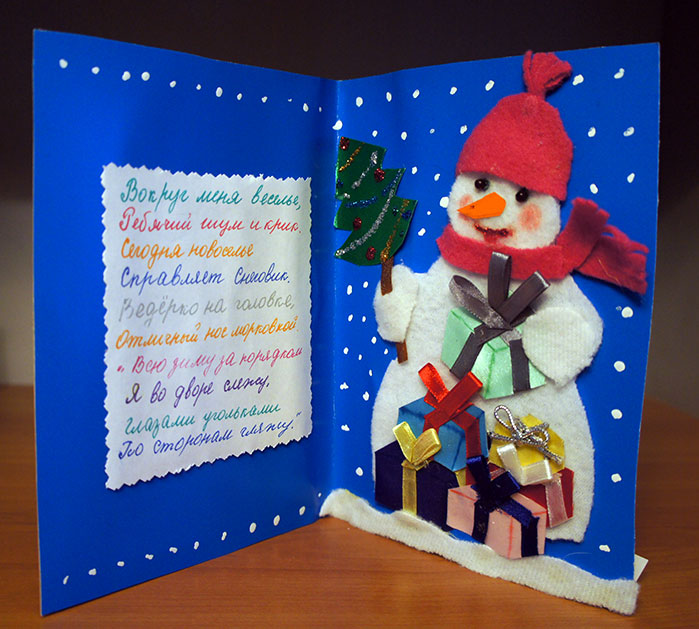 Вокруг меня веселье,
Ребячий шум и крик.
Сегодня новоселье
Справляет Снеговик.
Ведёрко на головке,
Отличный нос морковкой
"Всю зиму за порядком
Я во дворе слежу,
Глазами угольками
По сторонам гляжу."